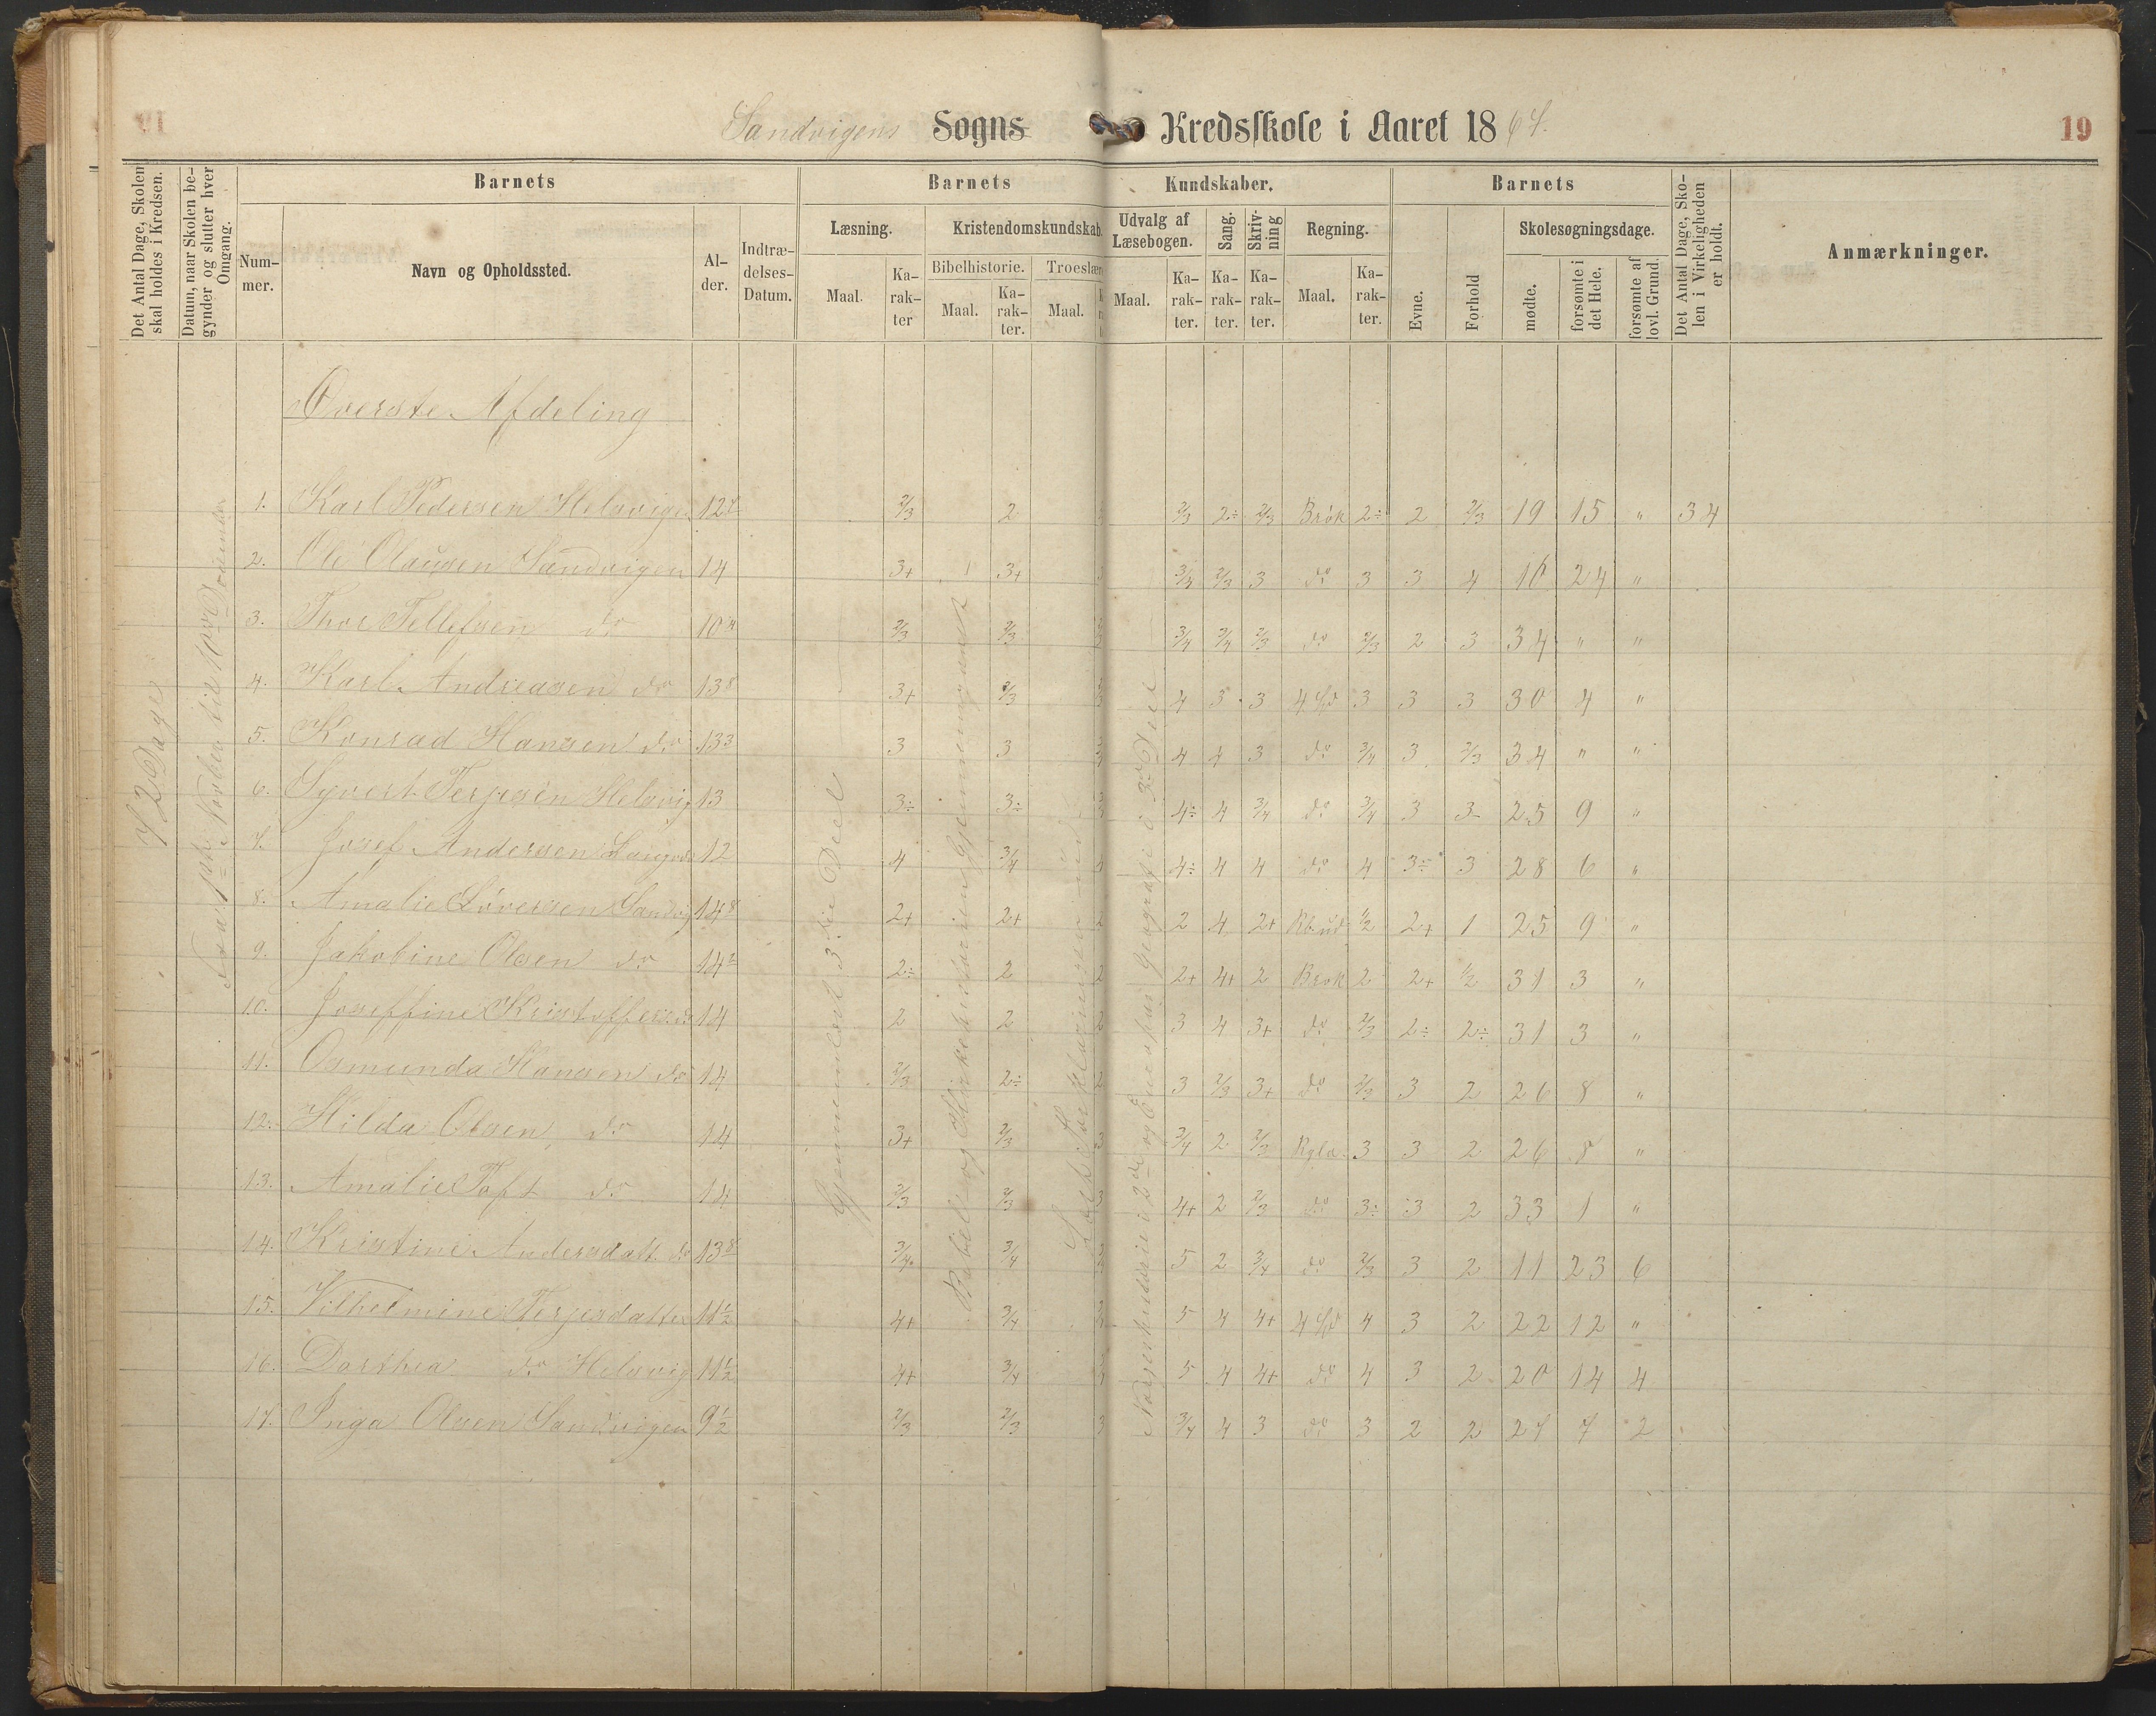 Sandvigens Sogns Kredsskole i Aaret 1867.
19
Det Antal Dage, Skolen skal holdes i Kredsen.
Datum, naar Skolen begynder og slutter hver Omgang.
Barnets
Nummer.
Navn og Opholdssted.
Alder.
Indtrædelses-Datum.
Barnets Kundskaber.
Læsning.
Maal.
Karakter
Kristendomskundskab.
Bibelhistorie.
Maal.
Karakter.
Troeslær
Maal.
Udvalg af Læsebogen.
Maal.
Karakter.
Sang.
Karakter.
Skrivning
Karakter.
Regning.
Maal.
Karakter.
Barnets
Evne.
Forhold
Skolesøgningsdage.
mødte.
forsømte i det Hele.
forsømte af lovl. Grund.
Det Antal Dage, Skolen i Virkeligheden er holdt.
Anmærkninger.
Øverste Afdeling
72 Dage
1. Karl Pedersen Helsvigen 12 2/3 2 2/3 2÷ 2/3 Brøk 2÷ 2 2/3 19 15 " 34
2. Ole Olausen Sandvigen 14 3+ 3+ 3 3/4 2/3 3 do 3 3 4 10 24 "
3. Thor Tellefsen do 10 2/3 2/3 3/4 3/4 2/3 do 2/3 2 3 34 " "
4. Karl Andreasen do 13 8 3+ 2/3 4 3 3 4 Sp 3 3 3 30 4 "
5. Konrad Hansen do 13 3 3 3 4 4 3 do 3/4 3 2/3 34 " "
6. Syvert Terjesen Helsvig 13 3÷ 3÷ 4÷ 4 3/4 do 3/4 3 3 25 9 "
7. Josef Andersen 12 4 3/4 4 4÷ 4 4 do 4 3÷ 3 28 6 "
8. Amalie Sørensen Sandvig 14 8 2+ 2+ 2 2 4 2+ 1/2 2+ 1 25 9 "
9. Jakobine Olsen do 14 2÷ 2 2 2+ 4+ 2 Brøk 2 2+ 1/2 31 3 "
10. Joseffine Kristoffers. do 14 2 2 2 3 4 3+ do 2/3 2÷ 2÷ 31 3 "
11. Osmunda Hansen do 14 2/3 2÷ 2 3 2/3 3+ do 2/3 3 2 26 8 "
12. Hilda Olsen do 14 3+ 2/3 3 3/4 2 2/3 3 3 2 26 8 "
13. Amalie Toft do 14 2/3 2/3 3 4+ 2 2/3 do 3÷ 3 2 33 1 "
14. Kristine Andersdatt. do 13 8 3/4 3/4 5 2 3/4 do 2/3 3 2 11 23 6
15. Vilhelmine Terjesdatter 11 1/2 4+ 3/4 5 4 4+ 4 Sp 4 3 2 22 12 "
16. Dorthea do Helsvig 11 1/2 4+ 3/4 5 4 4+ do 4 3 2 20 14 4
17. Inga Olsen Sandvigen 9 1/2 2/3 2/3 3 3/4 4 3 do 3 2 2 27 7 2
Gjennemlæst 3die Deel
Bibel- og Kirkehistorien Gjennemgaaet